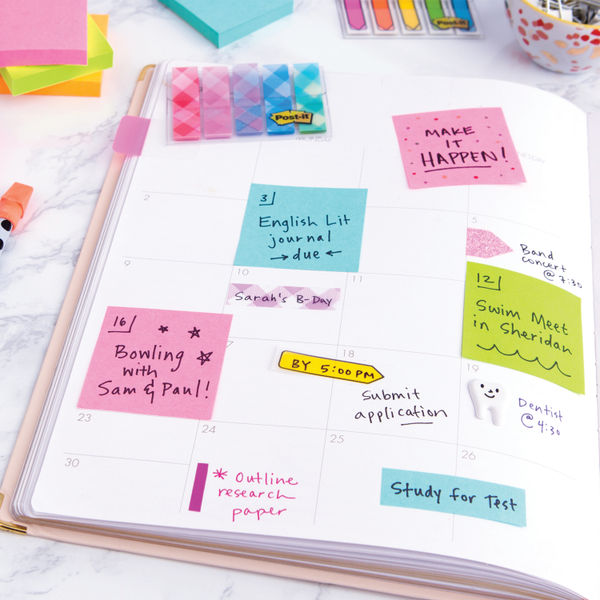 Post-it
Post-it
MAKE
IT
HAPPEN!
2
3
English Lit
journal
→due←
5
Band
concert
@ 7:30
9
10
Sarah's B-Day
11
12
Swim Meet
in Sheridan
16
Bowling
with
Sam & Paul!
7
BY 5:00 PM
18
Submit
application
19
Dentist
@ 4:30
23
24
* Outline
research
paper
25
26
Study for Test
30